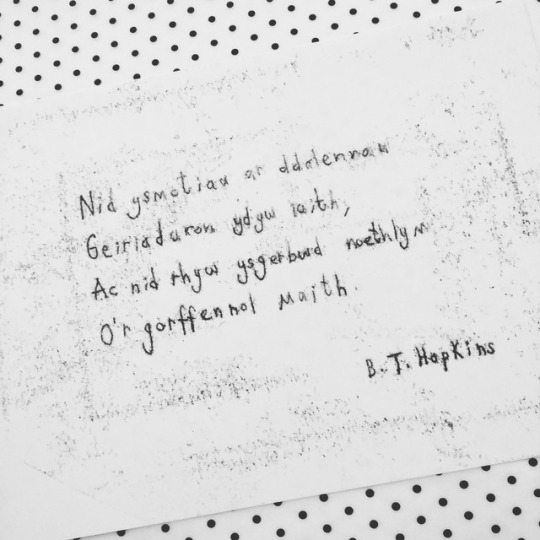 Nid ysmotiau ar ddalennau
Geiriaduron ydyw iaith,
Ac nid rhyw ysgerbwd noethlym
O'r gorffennol maith.
B. T. Hopkins